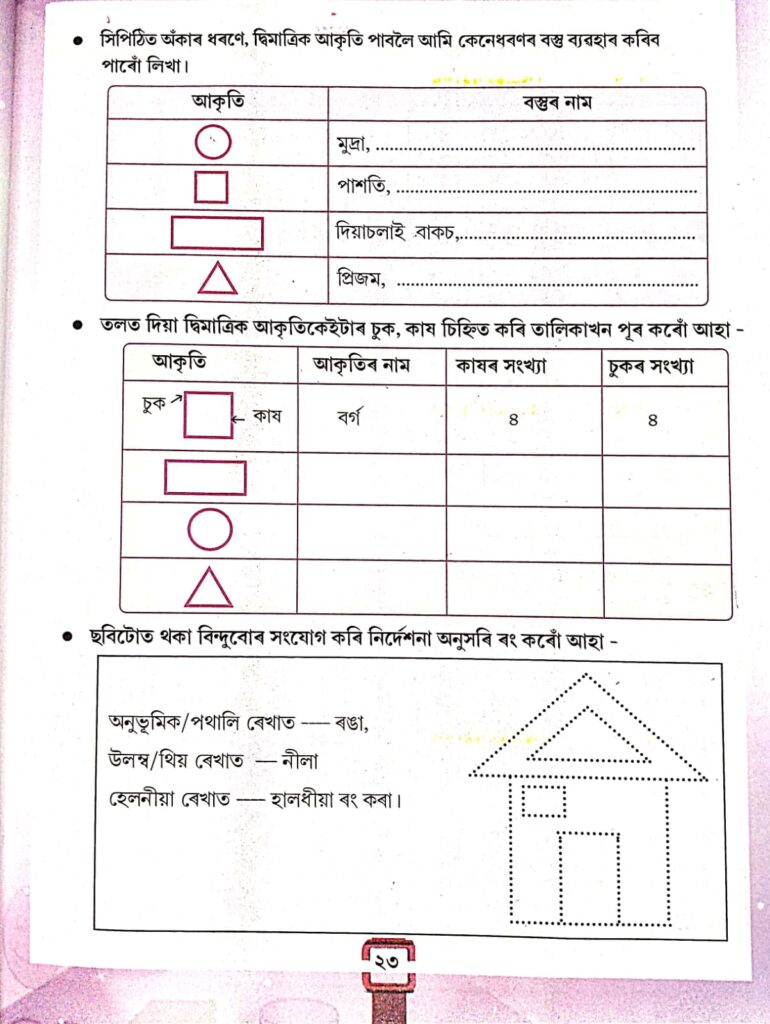 সিপিঠিত অঁকাৰ ধৰণে, দ্বিমাত্ৰিক আকৃতি পাবলৈ আমি কেনেধৰণৰ বস্তু ব্যৱহাৰ কৰিব
পাৰোঁ লিখা।
আকৃতি বস্তুৰ নাম
মুদ্ৰা, ............................................................
পাশতি, ............................................................
দিয়াচলাই বাকচ,............................................
প্ৰিজম, ............................................................
তলত দিয়া দ্বিমাত্ৰিক আকৃতিকেইটাৰ চুক, কাষ চিহ্নিত কৰি তালিকাখন পূৰ কৰোঁ আহা -
আকৃতি আকৃতিৰ নাম কাষৰ সংখ্যা চুকৰ সংখ্যা
চুক ↗ ← কাষ বৰ্গ ৪ ৪
ছবিটোত থকা বিন্দুবোৰ সংযোগ কৰি নিৰ্দেশনা অনুসৰি ৰং কৰোঁ আহা -
অনুভূমিক/পথালি ৰেখাত ---- ৰঙা,
উলম্ব/থিয় ৰেখাত — নীলা
হেলনীয়া ৰেখাত ---- হালধীয়া ৰং কৰা।
২৩